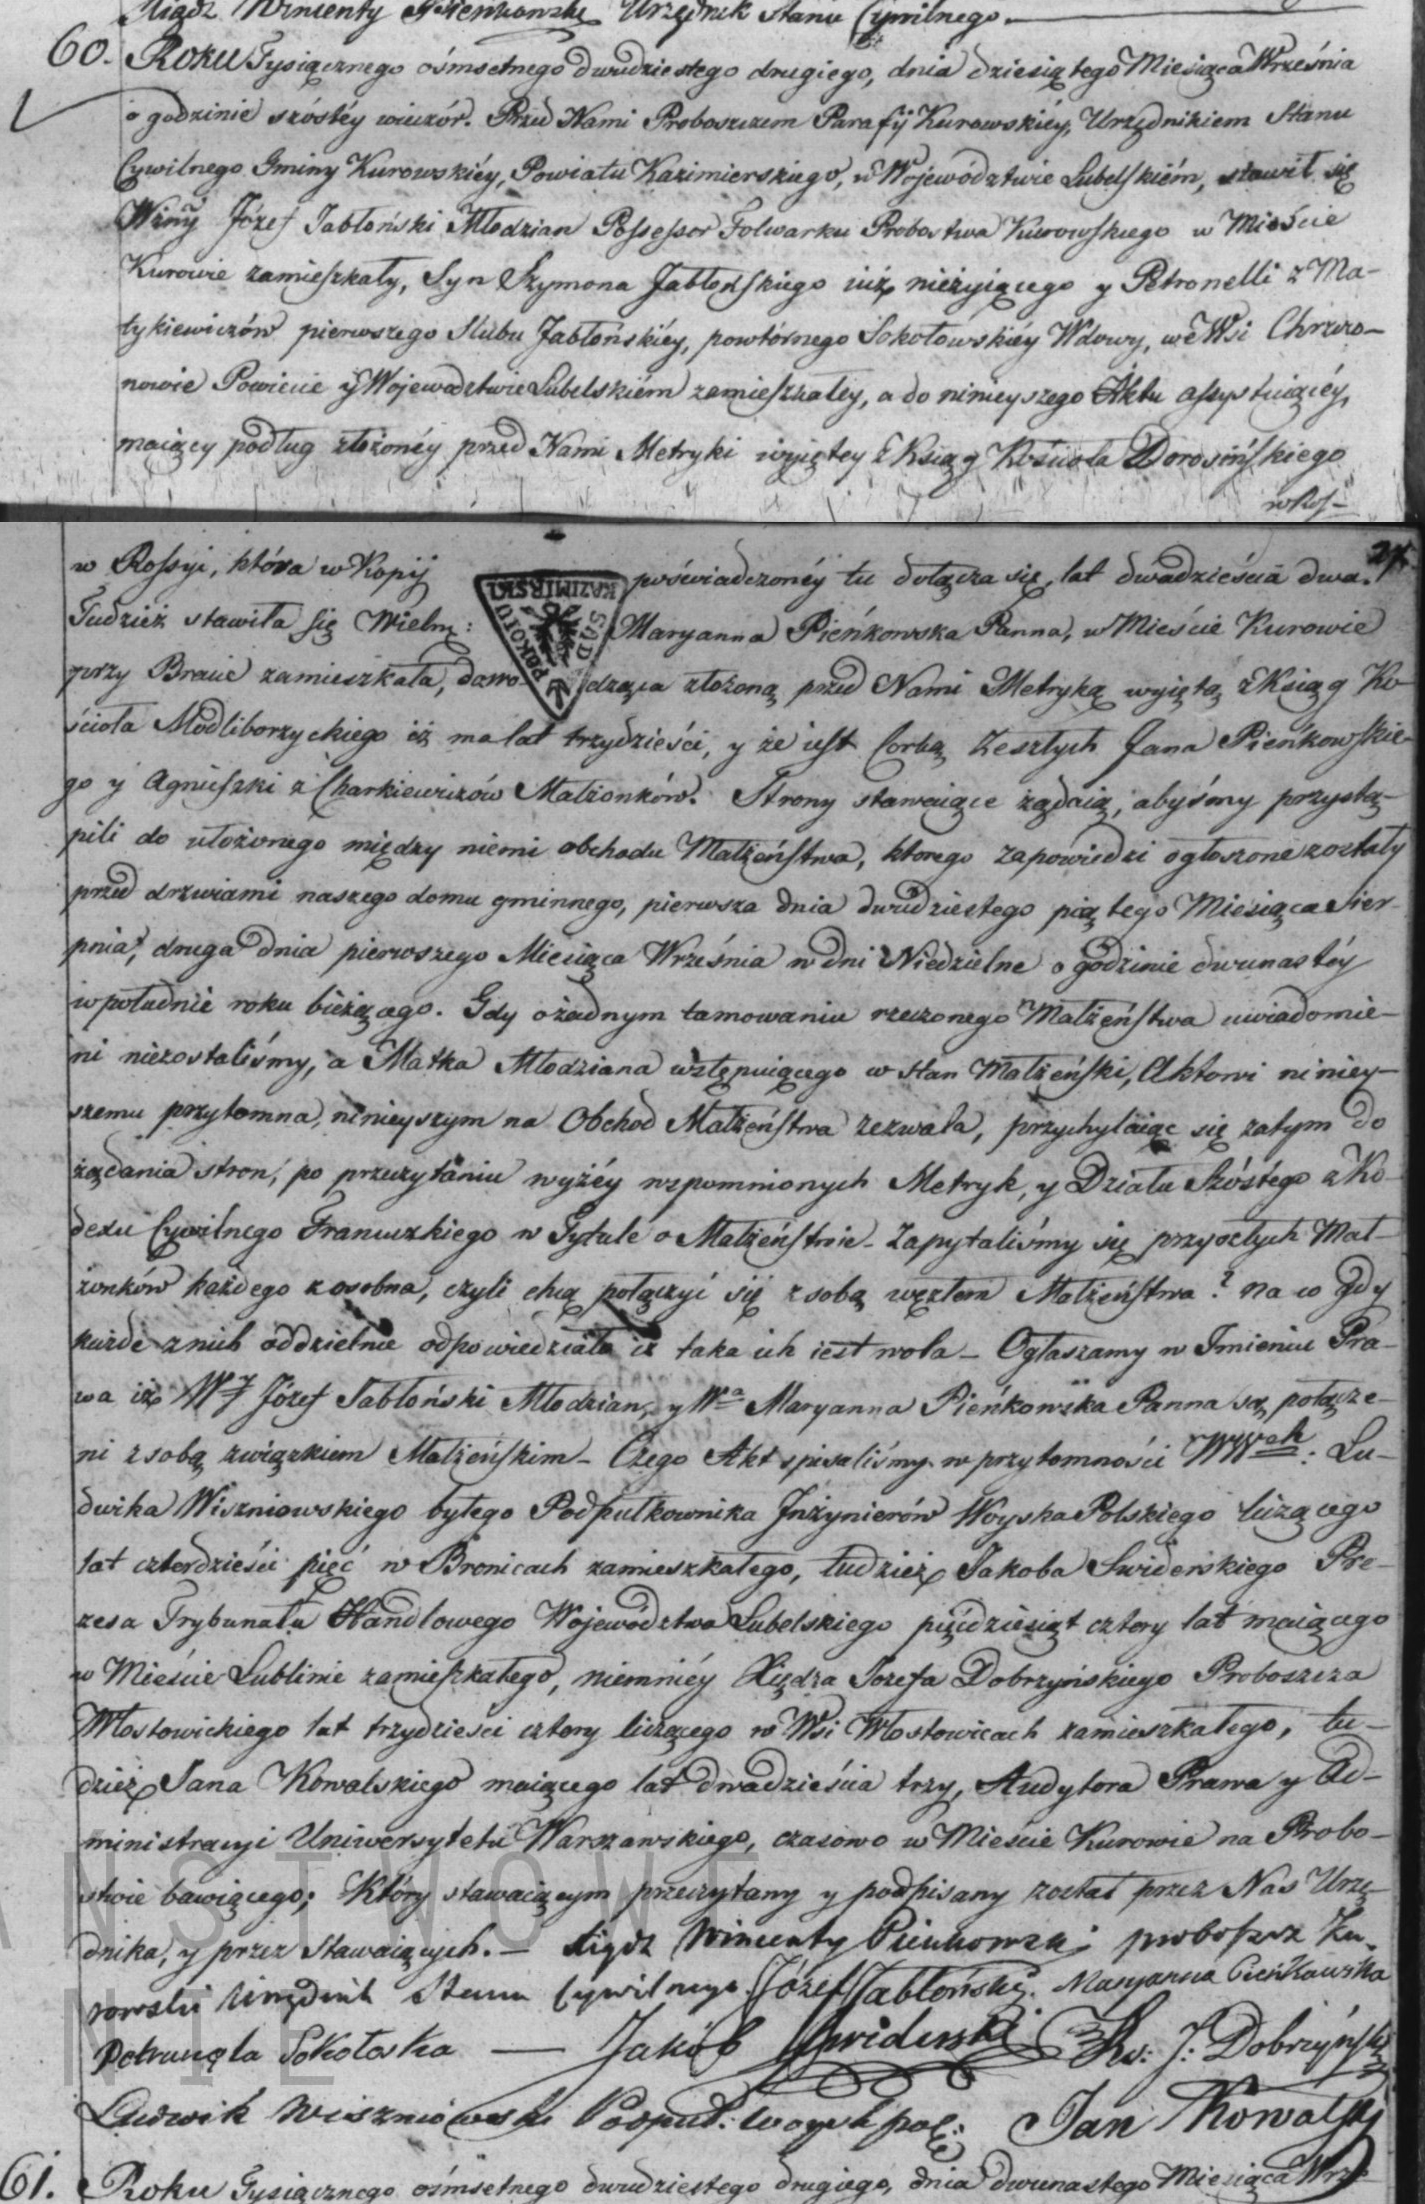 Xiądz Wincenty Pieńkowski Urzędnik Stanu Cywilnego.
60. Roku Tysiącznego ośmsetnego dwudziestego drugiego, dnia dziesiątego Miesiąca Września
o godzinie szóstéy wieczór. Przed Nami Proboszczem Parafij Kurowskiéy, Urzędnikiem Stanu
Cywilnego Gminy Kurowskiéy, Powiatu Kazimierskiego, w Województwie Lubelskiém, stawił się
Wżny Józef Jabłoński Młodzian Possessor Folwarku Probostwa Kurowskiego w Mieście
Kurowie zamieszkały, Syn Szymona Jabłońskiego iuż nieżyiącego y Petronelli z Ma-
tykiewiczów pierwszego Slubu Jabłońskiéy, powtórnego Sokołowskiéy Wdowy, we Wsi Chrzco-
nowie Powiecie y Województwie Lubelskiem zamieszkałey, a do ninieyszego Aktu assystuiącéy,
maiący podług złożonéy przed Nami Metryki wyiętey z Ksiąg Kościoła Dorosińskiego
w Ros-
w Rossyi, która w Kopij poświadczonéy tu dołącza się, lat dwadzieścia dwa.
KAZIMIRSKI SĄD POKOIU
Tudzież stawiła się Wielm: Maryanna Pieńkowska Panna, w Mieście Kurowie
przy Bracie zamieszkała, dowodząca złożoną przed Nami Metryką wyiętą z Ksiąg Ko-
ścioła Modliborzyckiego iż ma lat trzydzieści, y że iest Corką Zeszłych Jana Pieńkowskie-
go y Agnieszki z Charkiewiczów Małżonków. Strony stawaiące żądaią, abyśmy przystą-
pili do ułożonego między niemi obchodu Małżeństwa, którego zapowiedzi ogłoszone zostały
przed drzwiami naszego domu gminnego, pierwsza dnia dwudziestego piątego Miesiąca Sier-
pnia, druga dnia pierwszego Miesiąca Września w dni Niedzielne o godzinie dwunastéy
w południe roku bieżącego. Gdy o żadnym tamowaniu rzeczonego Małżeństwa uwiadomie-
ni niezostaliśmy, a Matka Młodziana wstępuiącego w stan Małżeński, Aktowi niniey-
szemu przytomna, ninieyszym na Obchod Małżeństwa zezwala, przychylaiąc się zatym do
żądania stron, po przeczytaniu wyżéy wspomnionych Metryk, y Działu Szóstego z Ko-
dexu Cywilnego Francuzkiego w Tytule o Małżeństwie - Zapytaliśmy się przyszłych Mał-
żonków każdego z osobna, czyli chcą połączyć się z sobą węzłem Małżeństwa? na co gdy
każde z nich oddzielnie odpowiedziało iż taka ich iest wola - Ogłaszamy w Imieniu Pra-
wa iż Wy Józef Jabłoński Młodzian, y Wa Maryanna Pieńkowska Panna są połącze-
ni z sobą związkiem Małżeńskim - Czego Akt spisaliśmy w przytomności WWch: Lu-
dwika Wiszniowskiego byłego Podpułkownika Inżynierów Woyska Polskiego liczącego
lat czterdzieści pięć w Bronicach zamieszkałego, tudzież Jakoba Swiderskiego Pre-
zesa Trybunału Handlowego Województwa Lubelskiego pięćdziesiąt cztery lat maiącego
w Mieście Lublinie zamieszkałego, niemniéy Xiędza Jozefa Dobrzyńskiego Proboszcza
Włostowickiego lat trzydzieści cztery liczącego w Wsi Włostowicach zamieszkałego, tu-
dzież Jana Kowalskiego maiącego lat dwadzieścia trzy, Audytora Prawa y Ad-
ministracyi Uniwersytetu Warszawskiego, czasowo w Mieście Kurowie na Probo-
stwie bawiącego; Który stawaiącym przeczytany y podpisany został przez Nas Urzę-
dnika, y przez Stawaiących. - Xiądz Wincenty Pieńkowski proboszcz Ku-
rowski Urzędnik Stanu Cywilnego. Józef Jabłoński. Maryanna Pieńkowska
Petronela Sokołoska — Jakób Swiderski Xs: J: Dobrzyński
Ludwik Wiszniowski Podpuł: woysk pol: Jan Kowalski
61. Roku Tysiącznego ośmsetnego dwudziestego drugiego, dnia dwunastego Miesiąca Wrze-